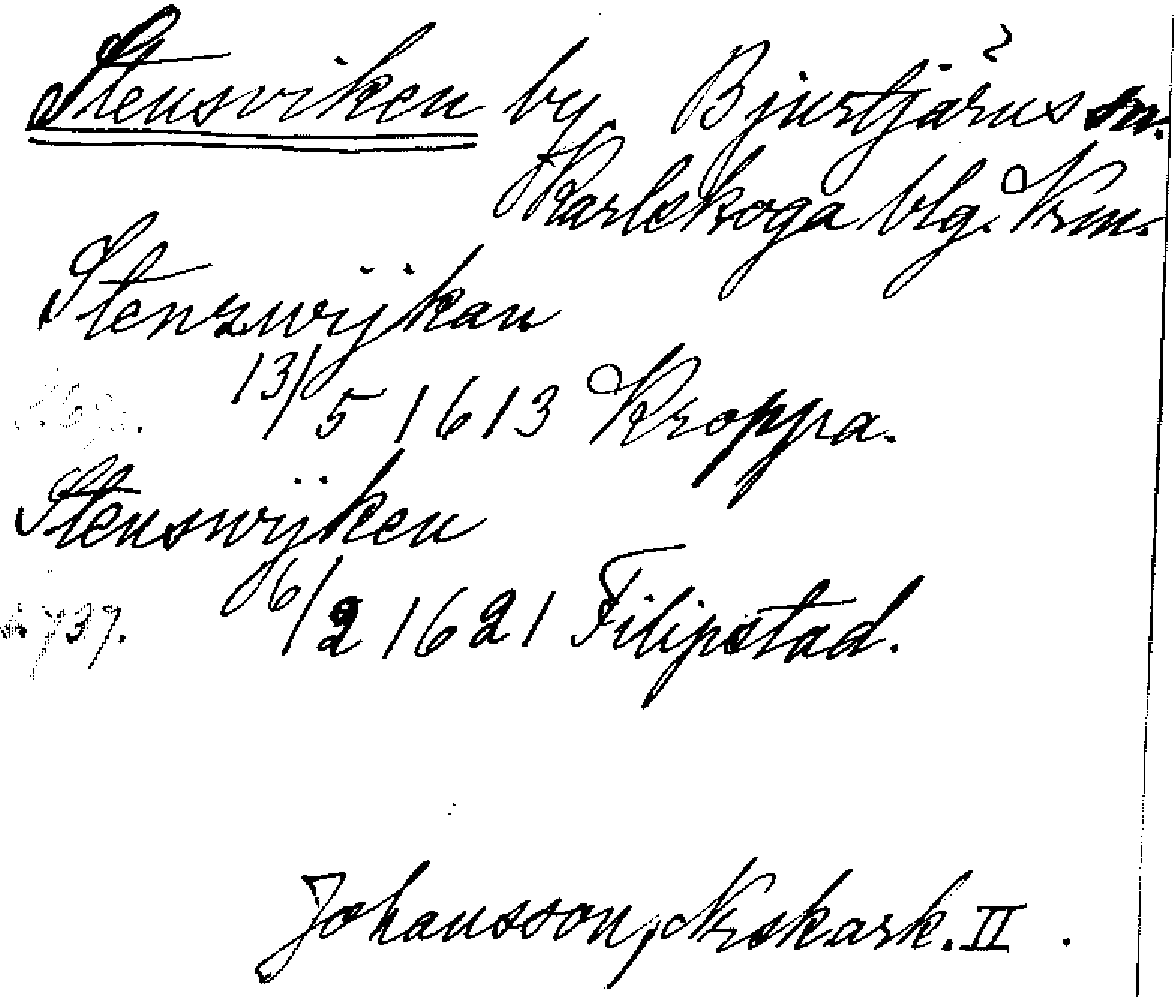 Stensviken by Bjurtjärns sn.
Karlskoga blg. Krm.
Stenzwijkan
13/5 1613 Kroppa.
Stenswijken
6/2 1621 Filipstad.
737.
Johansson, Nrskark. II.